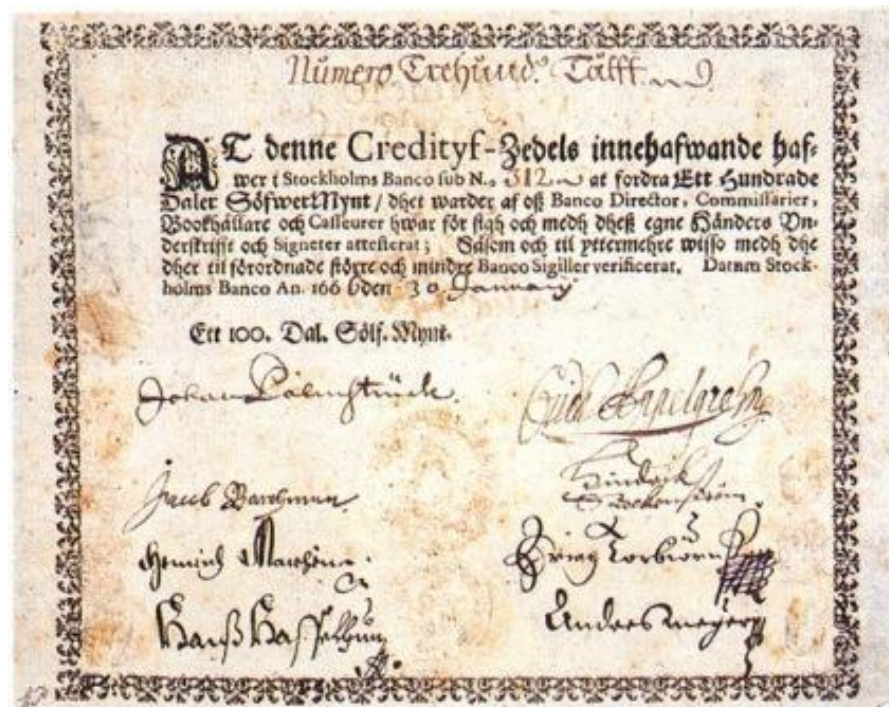 Numero Trehund. Tålff
AT denne Credityf-Zedels innehafwande haf-
wer i Stockholms Banco sub N.o 312 at fordra Ett Hundrade
Daler SölfwerMynt / dhet warder af oß Banco Director, Commissarier,
Bookhållare och Casseurer hwar för sigh och medh dheß egne Händers Vn-
derskrifft och Signeter attesterat; Såsom och til yttermehre wisso medh dhe
dher til förordnade större och mindre Banco Sigiller verificerat. Datum Stock-
holms Banco An. 1666 den 30 January
Ett 100. Dal. Sölf. Mynt.
Johan Palmstruck
Jacob Barchman
Hindrik
Hanß
Anders Meyer